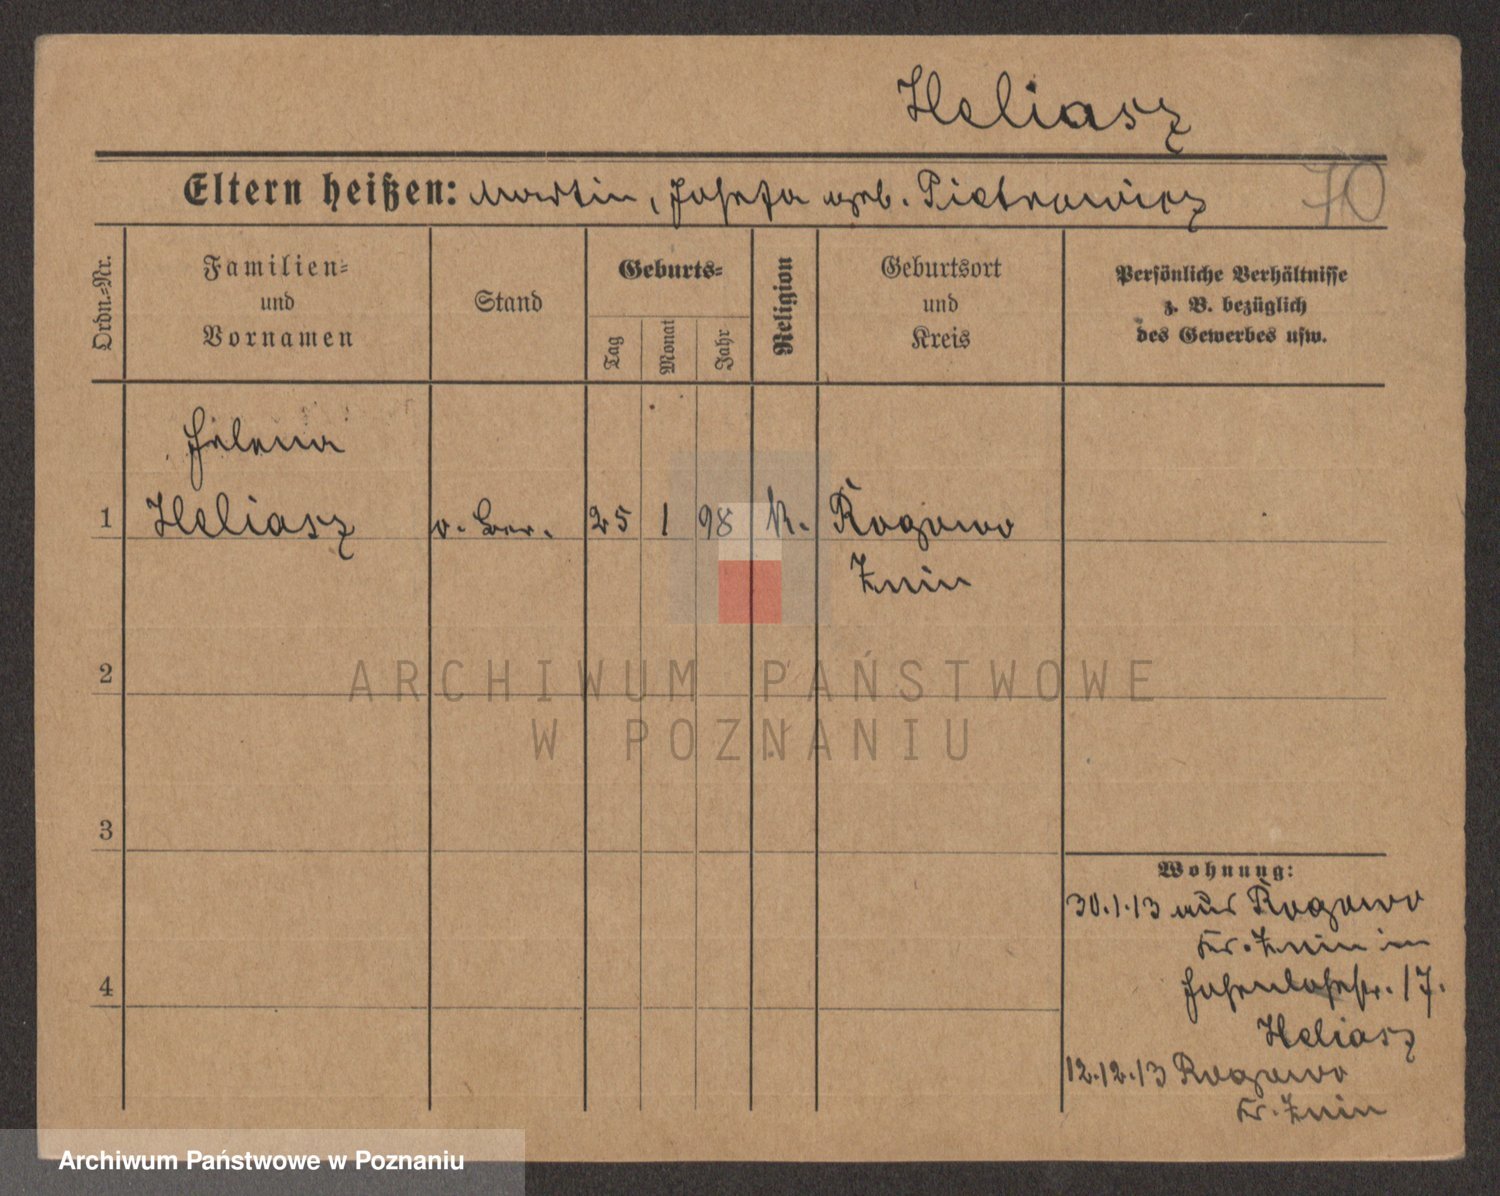 Heliasz
Eltern heißen: Martin, Josefa geb. Pietrowicz
70
Ordn.-Nr.
Familien- und Vornamen
Stand
Geburts-
Tag
Monat
Jahr
Religion
Geburtsort und Kreis
Persönliche Verhältnisse
z. B. bezüglich
des Gewerbes usw.
Helena
1 Heliasz o. Ber. 25 1 98 k. Rogowo
Znin
2
ARCHIWUM PAŃSTWOWE
W POZNANIU
3
4
Wohnung:
30.1.13 aus Rogowo
Kr. Znin in
Hohenlohestr. 17.
Heliasz
12.12.13 Rogowo
Kr. Znin
Archiwum Państwowe w Poznaniu